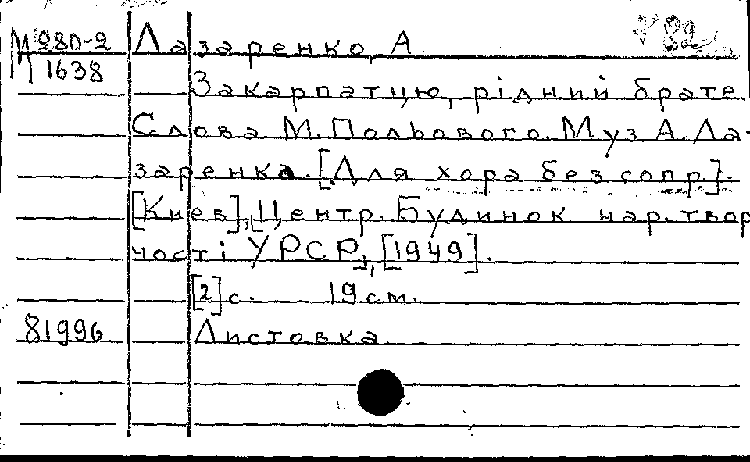 М 980-2 Лазаренко, А
1638
Закарпатцю, рідний брате.
Слова М. Польового. Муз А. Ла-
заренка. [Для хора без сопр.].
[Киев], Центр. Будинок нар. твор
чості УРСР, [1949].
[2] с. 19 см.
81996 Листовка